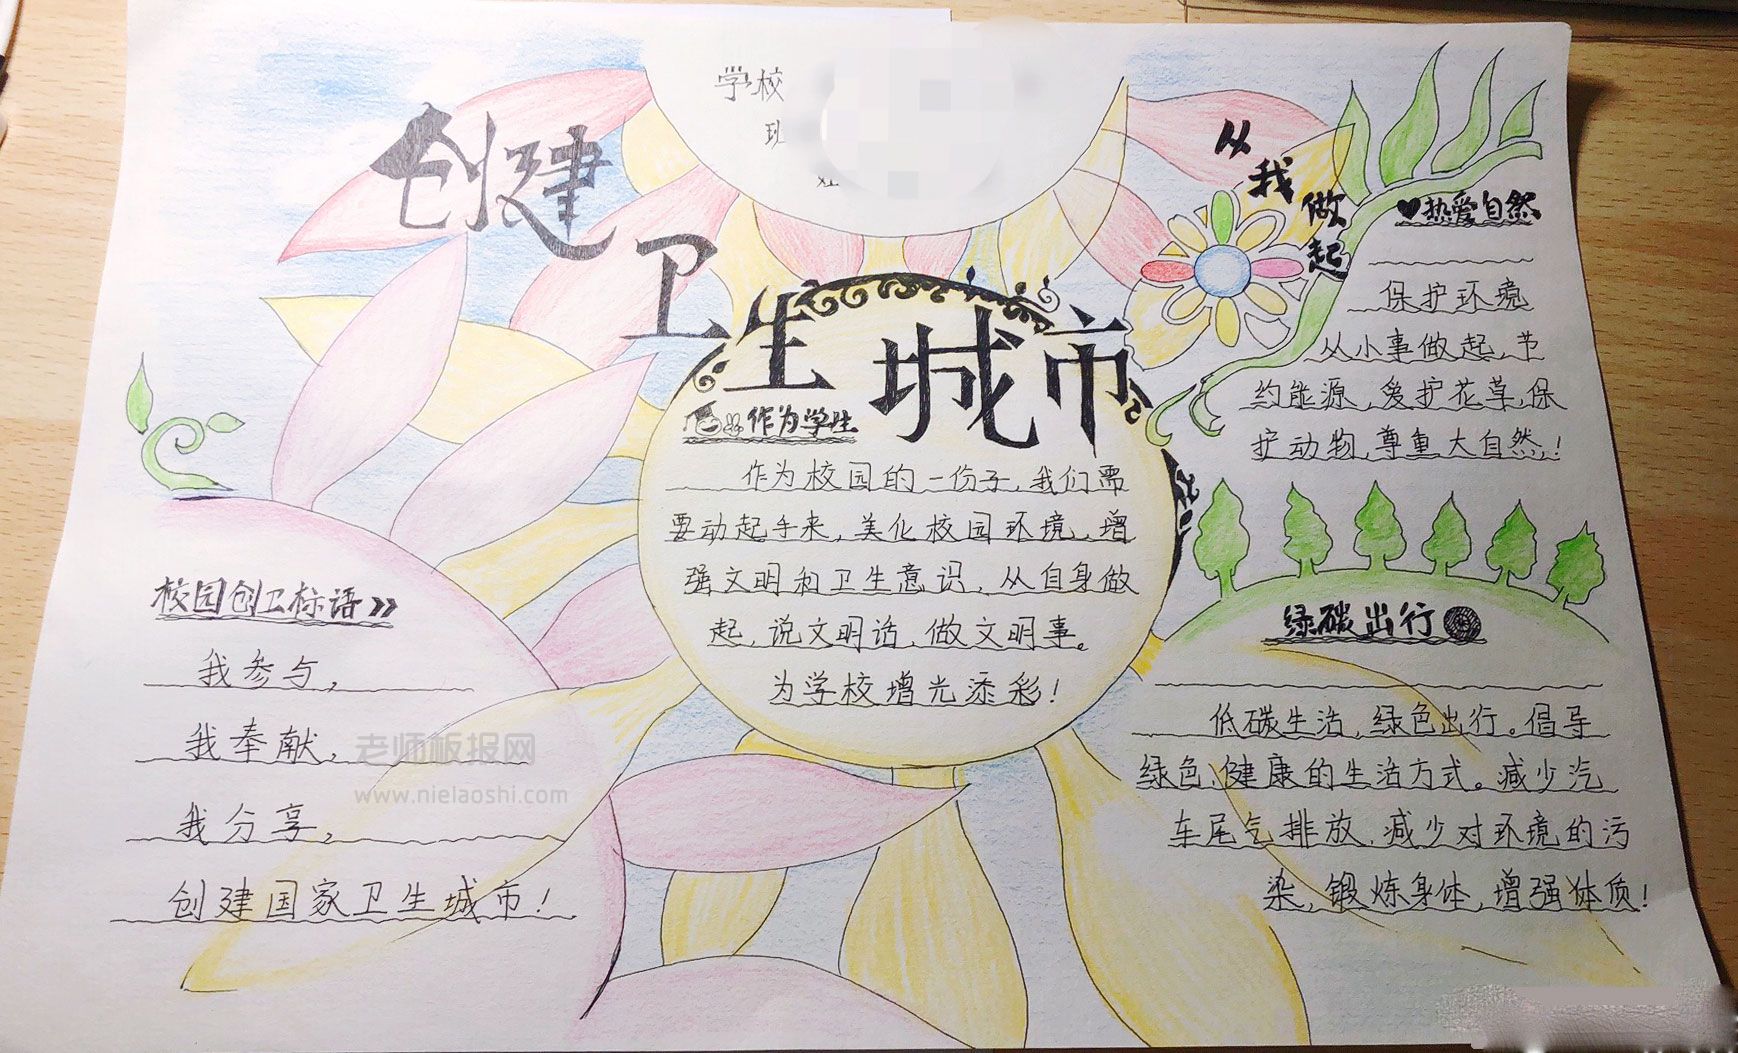 学校
班
创建
卫生城市
从我做起
作为学生
作为校园的一份子，我们需
要动起手来，美化校园环境，增
强文明和卫生意识，从自身做
起，说文明话，做文明事。
为学校增光添彩！
热爱自然
保护环境
从小事做起，节
约能源，爱护花草，保
护动物，尊重大自然！
校园创卫标语》
我参与，
我奉献，
我分享，
创建国家卫生城市！
绿碳出行
低碳生活，绿色出行。倡导
绿色、健康的生活方式。减少汽
车尾气排放，减少对环境的污
染，锻炼身体，增强体质！
老师板报网
www.nielaoshi.com